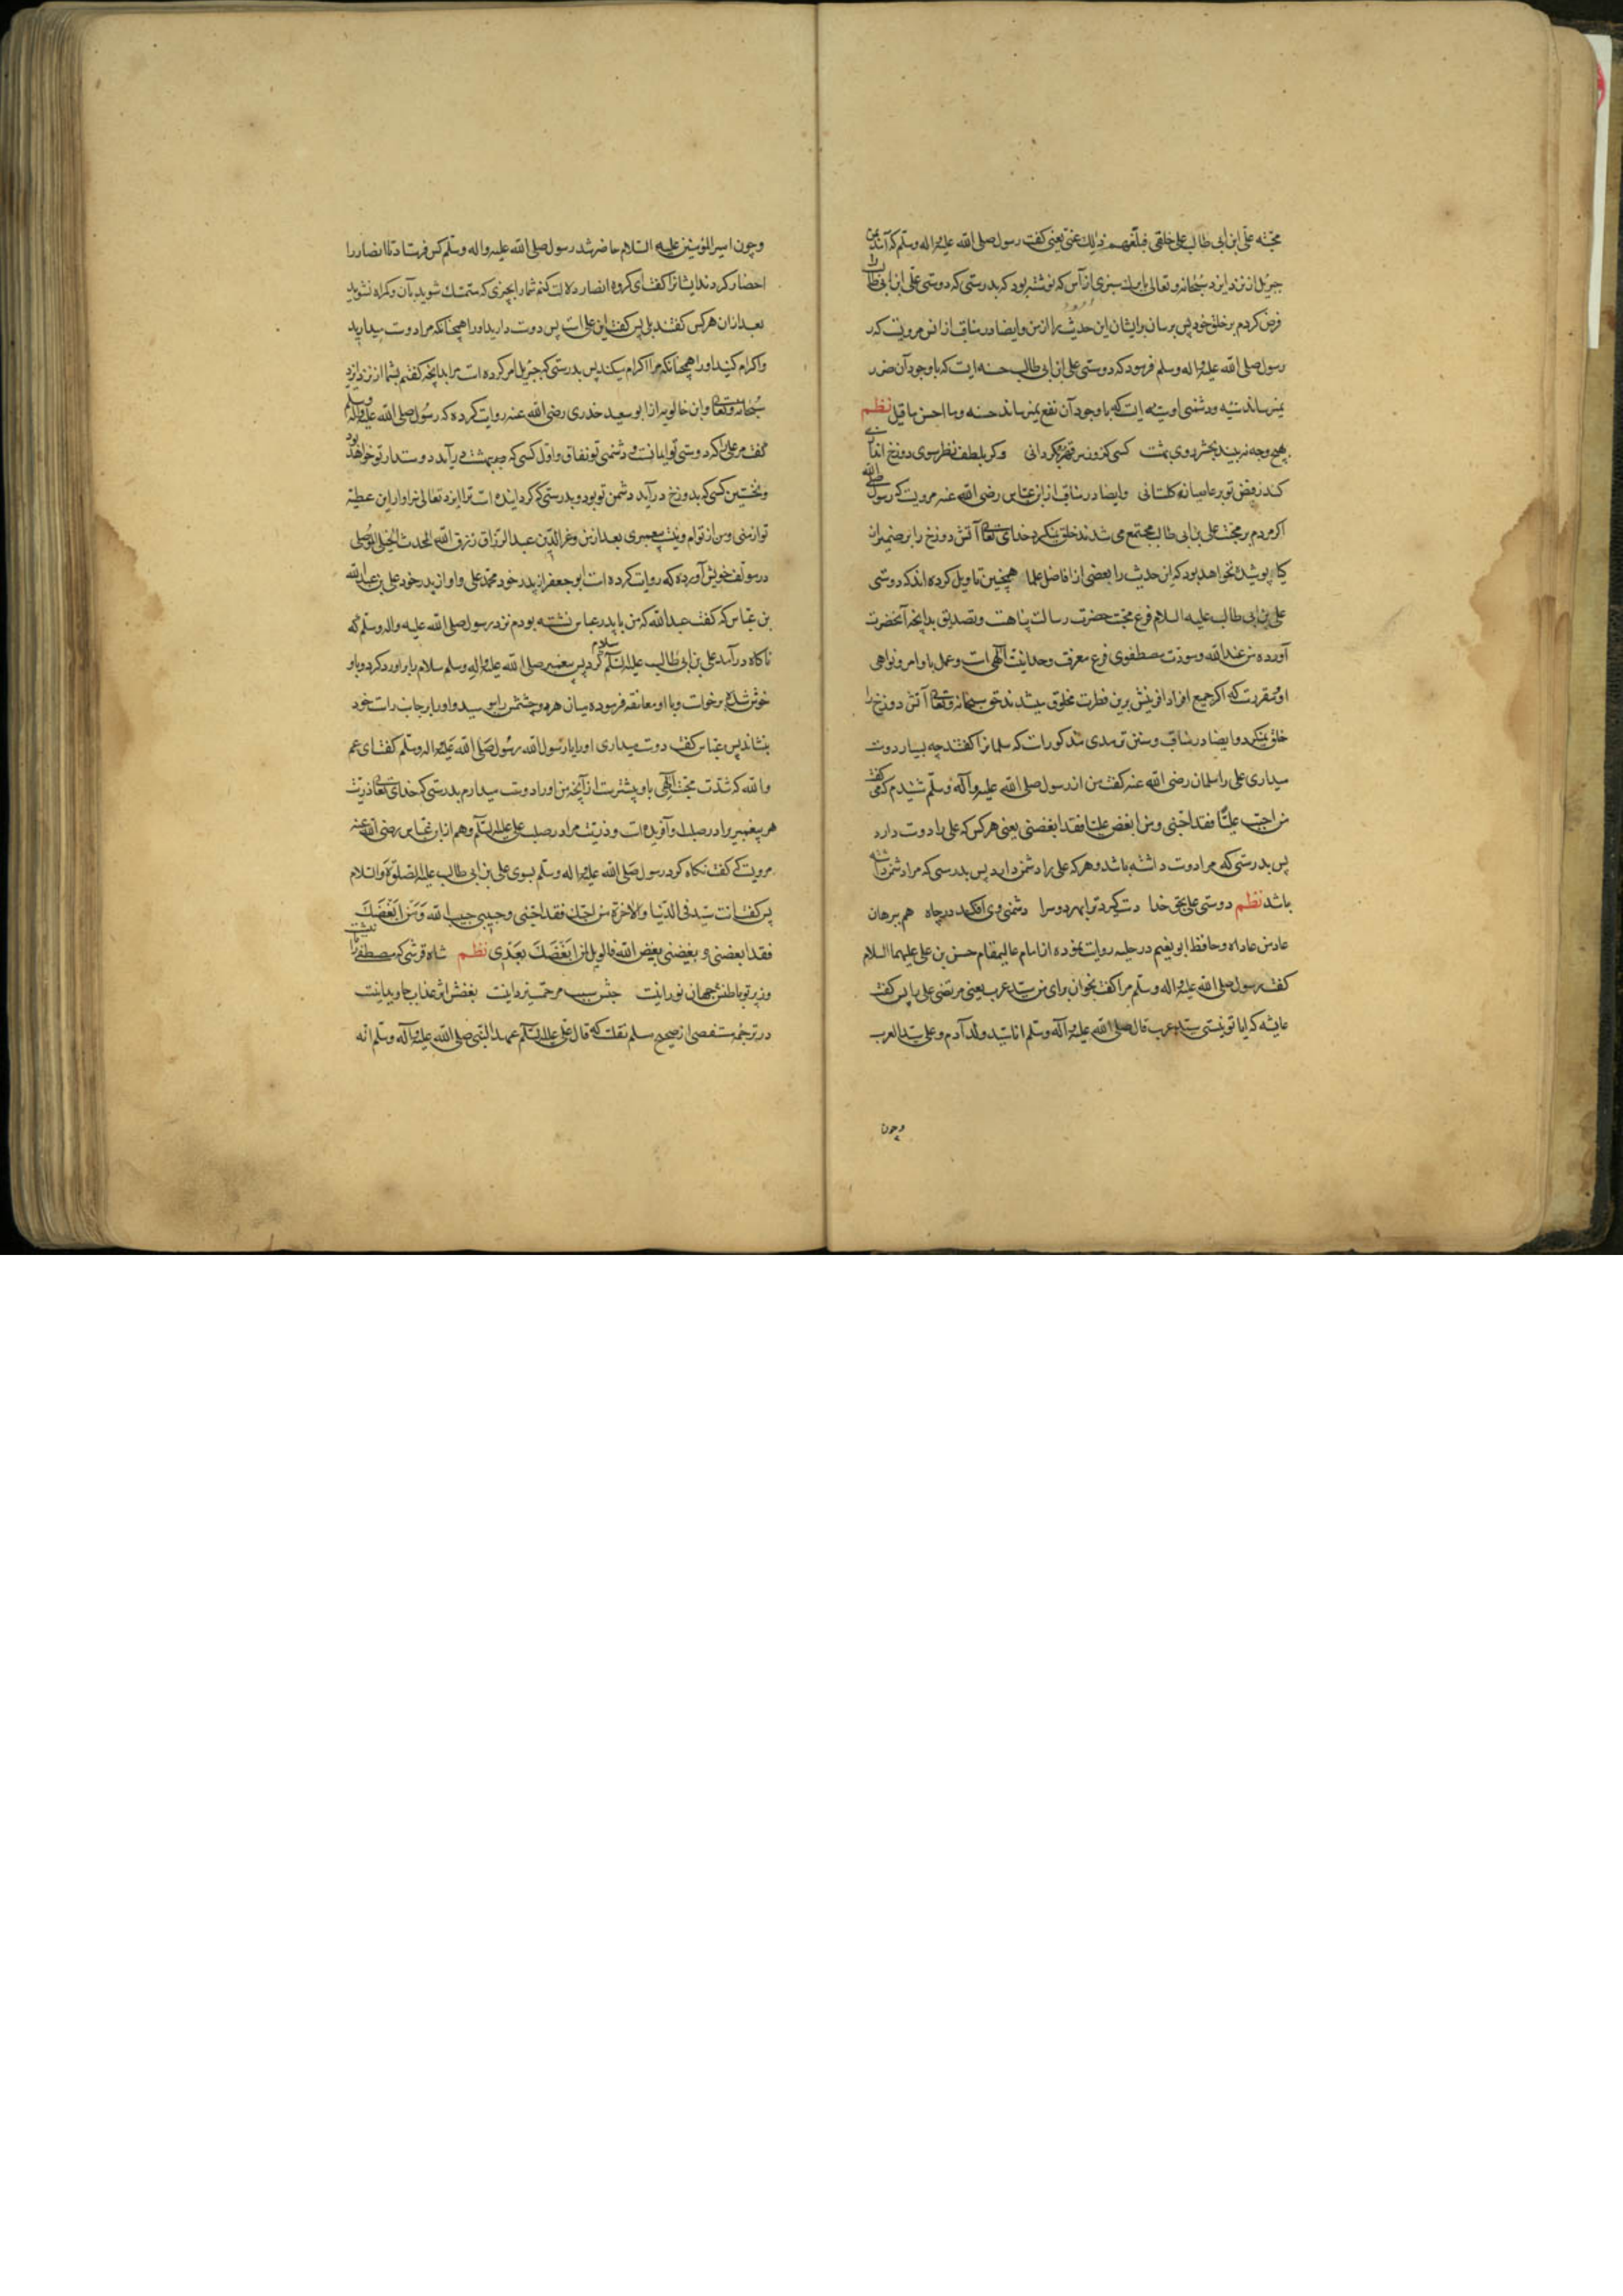 محبّته علی ابن ابی طالب علی خلقی فبلّغهم ذلک عنّی یعنی گفت رسول صلی الله علیه و اله وسلم که آمد بمن
جبرئیل از نزد ایزد سبحانه و تعالی بابرک سبزی از آس که نوشته بود که بدرستی که دوستی علی ابن ابی طالب را
فرض کردم بر خلق خود پس برسان بر ایشان این حدیث را از من و ایضا در مناقب از انس مرویست که
رسول صلی الله علیه و اله وسلم فرمود که دوستی علی ابن ابی طالب حسنه ایست که با وجود آن ضرر
نمیرساند سیّئه و دشمنی او سیّئه ایست که با وجود آن نفع نمیرساند حسنه و ما احسن ما قیل نظم
بهیچ وجه نبیند بحشر روی بهشت کسی کزو بره قهر رو بگردانی وگر بلطف نظر سوی دوزخ اندازی
کند ز فیض تو بر عاصیانه گلستانی وایضا در مناقب از ابن عبّاس رضی الله عنه مرویست که رسول صلی الله
اگر مردم بر محبّت علی بن ابی طالب مجتمع می شدند خلق نمیکرد خدای تعالی آتش دوزخ را بر ضمیر آن
که پوشیده نخواهد بود که این حدیث را بعضی از افاضل علما همچنین تاویل کرده اند که دوستی
علی بن ابی طالب علیه السلام فرع محبّت حضرت رسالت پناهست و تصدیق بدانچه آنحضرت
آورده من عند الله و مودّت مصطفوی فرع معرفت وحدانیّت الهی است و عمل با وامر و نواهی
او و مقررست که اگر جمیع افراد آفرینش برین فطرت مخلوق میشدند حق سبحانه و تعالی آتش دوزخ را
خلق نمیکرد و ایضا در مناقب و سنن ترمدی مذکورات که سلمانرا گفتند چه بسیار دوست
میداری علی را سلمان رضی الله عنه گفت من از رسول صلی الله علیه و آله وسلّم شنیدم که می گفت
من احبّ علیّا فقد احبّنی و من ابغض علیّا فقد ابغضنی یعنی هر کس که علی را دوست دارد
پس بدرستی که مرا دوست داشته باشد و هر که علی را دشمن دارد پس بدرستی که مرا دشمن داشته
باشد نظم دوستی علی بحق خدا دست گیرد ترا بهر دوسرا دشمنی وی افکند در چاه هم برهان
عاد من عاداه و حافظ ابو نعیم در حلیه روایت نموده از امام عالیمقام حسن بن علی علیهما السلام
گفت رسول صلی الله علیه و اله وسلّم مرا گفت بخوان برای من سیّد عرب یعنی مرتضی علی را پس گفت
عایشه که ایا تو نیستی سیّد عرب قال صلی الله علیه و آله وسلّم انا سیّد ولد آدم و علی سیّد العرب
وچون
وچون امیر المؤمنین علیه السّلام حاضر شد رسول صلی الله علیه واله وسلّم کس فرستاد تا انصار را
احضار کردند ایشانرا گفت ای گروه انصار دلالت کنم شما را بچیزی که متمسّک شوید بآن و گمراه نشوید
بعد از آن هر کس گفتند بلی پس گفت این علی است پس دوست دارید او را همچنانکه مرا دوست میدارید
و اکرام کنید او را همچنانکه مرا اکرام میکنید پس بدرستی که جبرئیل امر کرده است مرا بدانچه گفتم بشما از نزد ایزد
سبحانه و تعالی وابن خالویه از ابو سعید خدری رضی الله عنه روایت کرده که رسول صلی الله علیه و اله وسلّم
گفت مر علی را که دوستی تو ایمانست و دشمنی تو نفاق و اوّل کسی که ببهشت در آید دوستدار تو خواهد بود
و نخستین کسی که بدوزخ در آید دشمن تو بود و بدرستی که گردانیده است ترا ایزد تعالی سزاوار این عطیّه
تو از منی و من از توام و نیست پیغمبری بعد از من و عزّ الدّین عبد الرزاق بن رزق الله المحدث الحنبلی الموصلی
در مؤلّف خویش آورده که روایت کرده است ابو جعفر از پدر خود محمّد علی و او از پدر خود علی بن عبد الله
بن عبّاس که گفت عبد الله که من با پدر عباس نشسته بودم نزد رسول صلی الله علیه واله وسلّم که
ناگاه در آمد علی بن ابی طالب علیه السّلم سلام کرد پس پیغمبر صلی الله علیه و اله وسلم سلام را بر او رد کرد و باو
خوش شده برخاست و با او معانقه فرموده میان هر دو چشمش را ببوسید و او را بر جانب راست خود
بنشاند پس عبّاس گفت دوست میداری او را یا رسول الله رسول صلی الله علیه و اله وسلّم گفت ای عم
والله که شدّت محبّت الهی باو بیشترست از آنچه من او را دوست میدارم بدرستی که خدای تعالی ذریّت
هر پیغمبر را در صلب او آفریده است و ذریّت مرا در صلب علی علیه السّلم و هم از ابن عبّاس رضی الله عنه
مرویست که گفت نگاه کرد رسول صلی الله علیه و اله وسلّم بسوی علی بن ابی طالب علیه الصّلوة والسّلام
پس گفت انت سیّد فی الدّنیا والآخرة من احبّک فقد احبّنی وحبیبی حبیب الله وَمَن ابَغَضَکَ
فقد ابغضنی و بغیضنی بغیض الله فالویل لمن ابَغَضَکَ بَعَدی نظم شاه قرشی که مصطفی را ثانیست
وز پرتو باطنش جهان نورانیست حبّش سبب مرحمت یزدانیست بغضش اثر عذاب جاویدانیست
در ترجمه مستقصی از صحیح مسلم نقلست که قال علی علیه السّلم عهد النّبی صلی الله علیه و آله وسلّم انّه